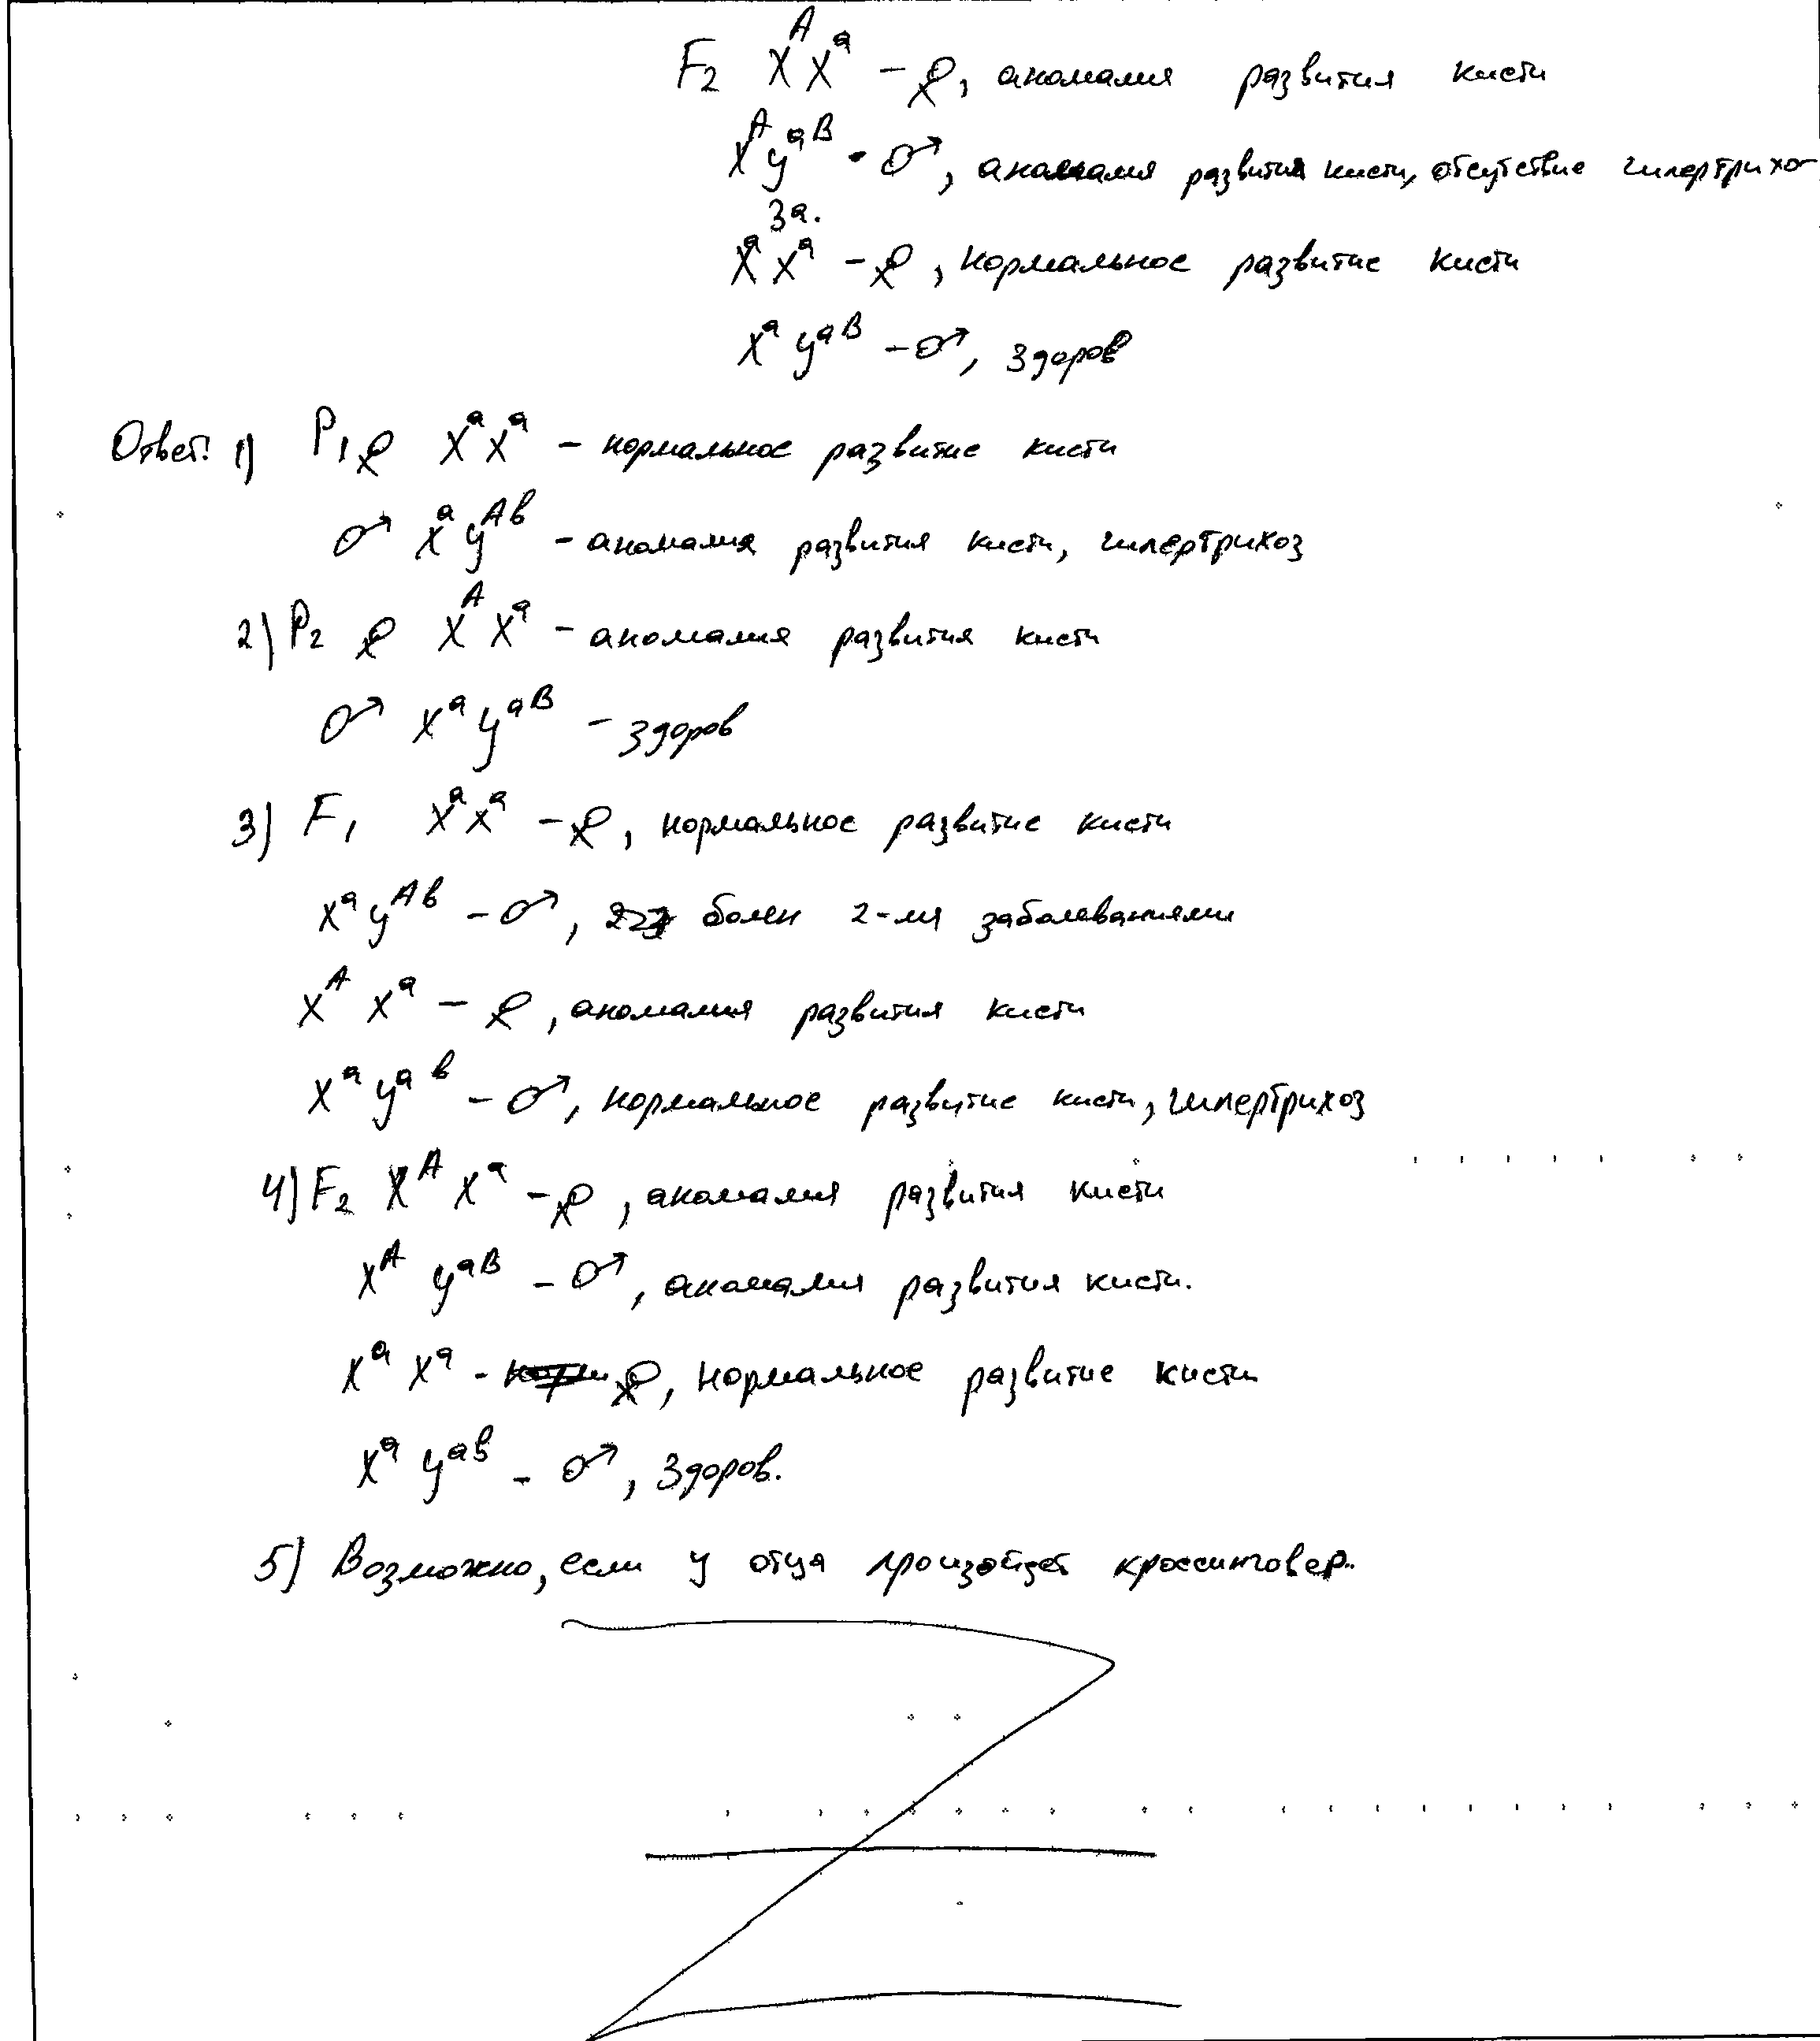 F₂ XᴬXᵃ - ♀, аномалия развития кисти
XᴬYᵃᴮ - ♂, аномалия развития кисти, отсутствие гипертрихо-
за.
XᵃXᵃ - ♀, нормальное развитие кисти
XᵃYᵃᴮ - ♂, здоров
Ответ: 1) P₁ ♀ XᵃXᵃ - нормальное развитие кисти
♂ XᵃYᴬᵇ - аномалия развития кисти, гипертрихоз
2) P₂ ♀ XᴬXᵃ - аномалия развития кисти
♂ XᵃYᵃᴮ - здоров
3) F₁ XᵃXᵃ - ♀, нормальное развитие кисти
XᵃYᴬᵇ - ♂, болен 2-мя заболеваниями
XᴬXᵃ - ♀, аномалия развития кисти
XᵃYᵃᵇ - ♂, нормальное развитие кисти, гипертрихоз
4) F₂ XᴬXᵃ - ♀, аномалия развития кисти
XᴬYᵃᴮ - ♂, аномалия развития кисти.
XᵃXᵃ - ♀, нормальное развитие кисти
XᵃYᵃᵇ - ♂, здоров.
5) Возможно, если у отца произойдет кроссинговер.